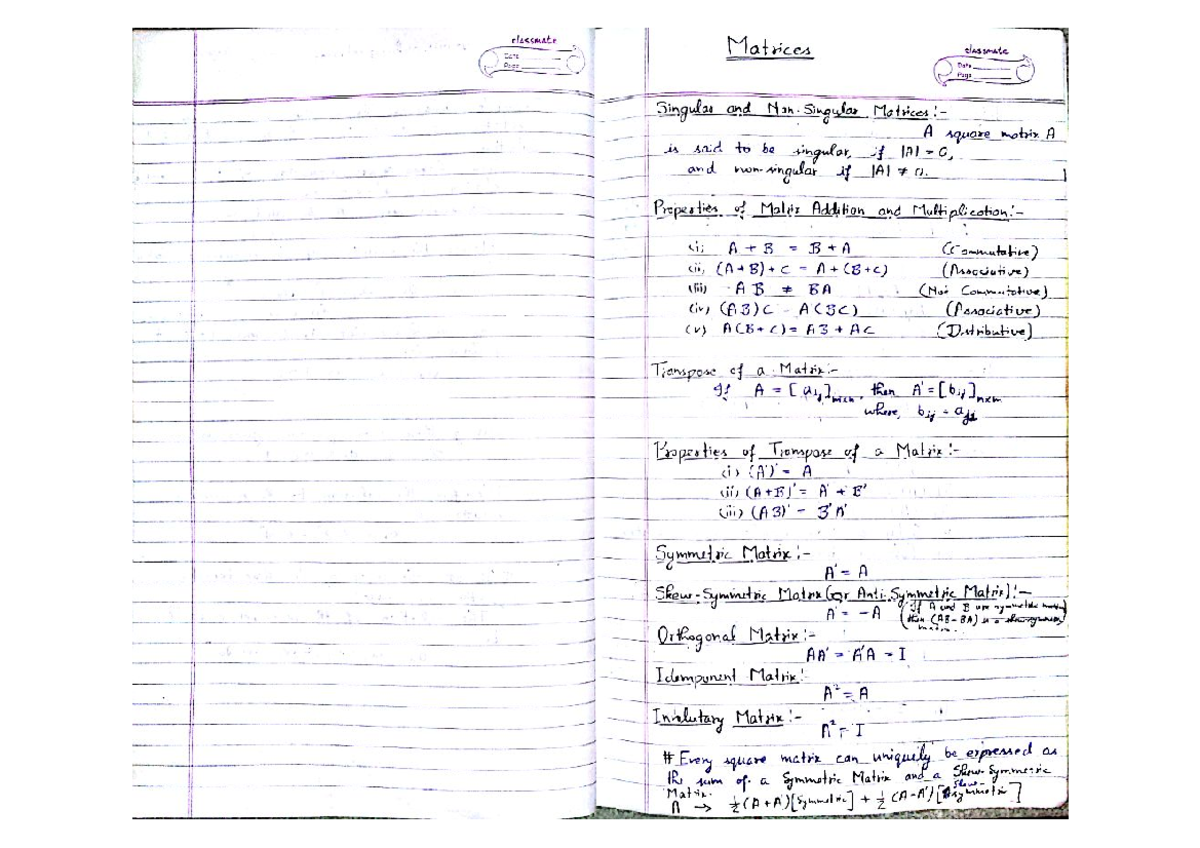 classmate
Date
Page
Matrices
classmate
Date
Page
Singular and Non-Singular Matrices:-
A square matrix A
is said to be singular, if |A| = 0,
and non-singular if |A| ≠ 0.
Properties of Matrix Addition and Multiplication:-
(i) A + B = B + A (Commutative)
(ii) (A+B)+C = A+(B+C) (Associative)
(iii) AB ≠ BA (Not Commutative)
(iv) (AB)C = A(BC) (Associative)
(v) A(B+C) = AB + AC (Distributive)
Transpose of a Matrix:-
If A = [aij]mxn, then A' = [bij]nxm
where, bij = aji
Properties of Transpose of a Matrix:-
(i) (A')' = A
(ii) (A+B)' = A' + B'
(iii) (AB)' = B'A'
Symmetric Matrix:-
A' = A
Skew-Symmetric Matrix (or Anti-Symmetric Matrix):-
A' = -A (If A and B are symmetric matrices
then (AB-BA) is a skew-symmetric
matrix.
Orthogonal Matrix:-
AA' = A'A = I
Idempunent Matrix:
A² = A
Involutary Matrix:-
A² = I
# Every square matrix can uniquely be expressed as
the sum of a Symmetric Matrix and a Skew-Symmetric
Matrix.
A → ½(A+A')[Symmetric] + ½(A-A')[Skew-Symmetric]